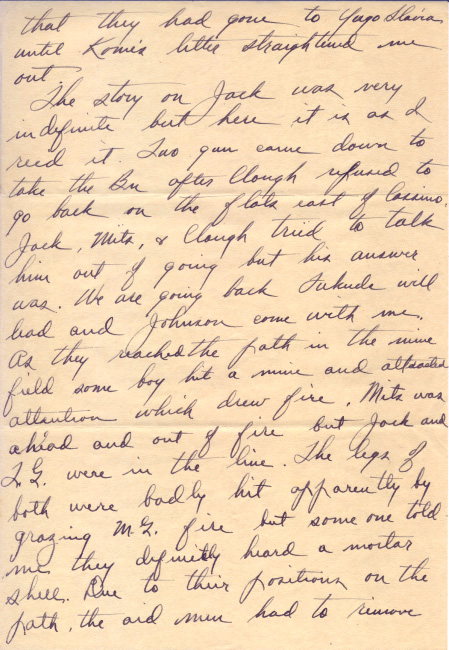 that they had gone to Yugo Slavia
until Kome's letter straightened me
out.
The story on Jack was very
indefinite but here it is as I
recd it. Two gun came down to
take the Bn after Clough refused to
go back on the flats east of Cassino.
Jack, Mits, & Clough tried to talk
him out of going but his answer
was. We are going back Fukuda will
lead and Johnson come with me.
As they reached the path in the mine
field some boy hit a mine and attracted
attention which drew fire. Mits was
ahead and out of fire but Jack and
T.G. were in the line. The legs of
both were badly hit apparently by
grazing M.G. fire but some one told
me they definitely heard a mortar
shell. Due to their positions on the
path, the aid men had to remove